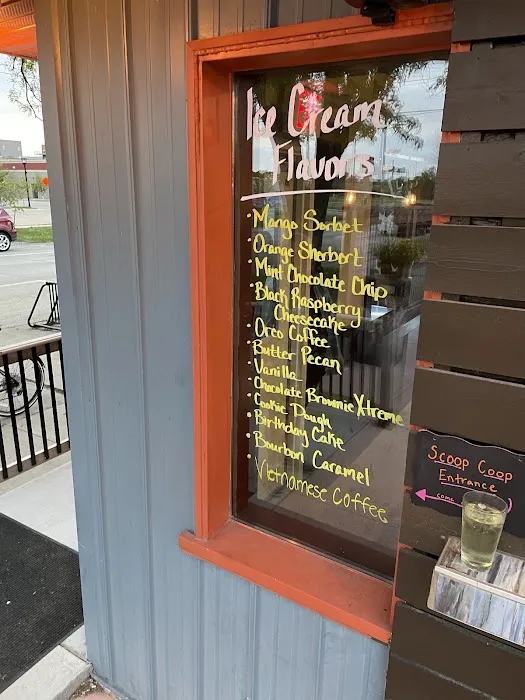 Ice Cream
Flavors
· Mango Sorbet
· Orange Sherbert
· Mint Chocolate Chip
· Black Raspberry
Cheesecake
· Oreo Coffee
· Butter Pecan
· Vanilla
· Chocolate Brownie Xtreme
· Cookie Dough
· Birthday Cake
· Bourbon Caramel
· Vietnamese Coffee
Scoop Coop
Entrance